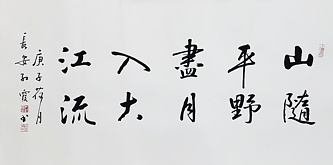 山隨
平野
盡月
入大
江流
庚子荷月
長安孙霞書